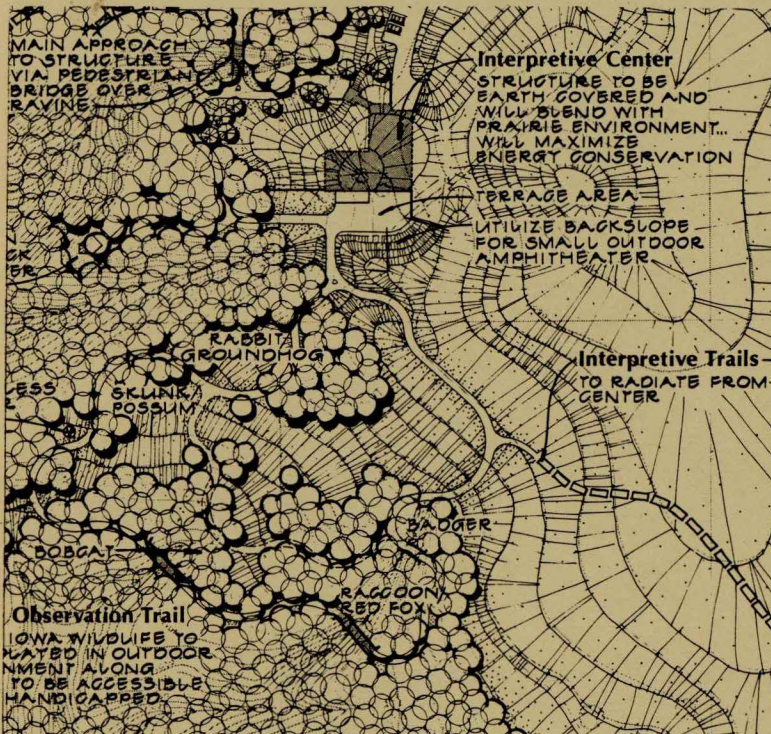 MAIN APPROACH
TO STRUCTURE
VIA PEDESTRIAN
BRIDGE OVER
RAVINE
Interpretive Center
STRUCTURE TO BE
EARTH COVERED AND
WILL BLEND WITH
PRAIRIE ENVIRONMENT...
WILL MAXIMIZE
ENERGY CONSERVATION
TERRACE AREA
UTILIZE BACKSLOPE
FOR SMALL OUTDOOR
AMPHITHEATER
N
CK
ER
RABBIT
GROUNDHOG
Interpretive Trails
TO RADIATE FROM
CENTER
ESS
SKUNK
POSSUM
BADGER
BOBCAT
RACCOON
RED FOX
Observation Trail
IOWA WILDLIFE TO
LATED IN OUTDOOR
NMENT ALONG
TO BE ACCESSIBLE
HANDICAPPED